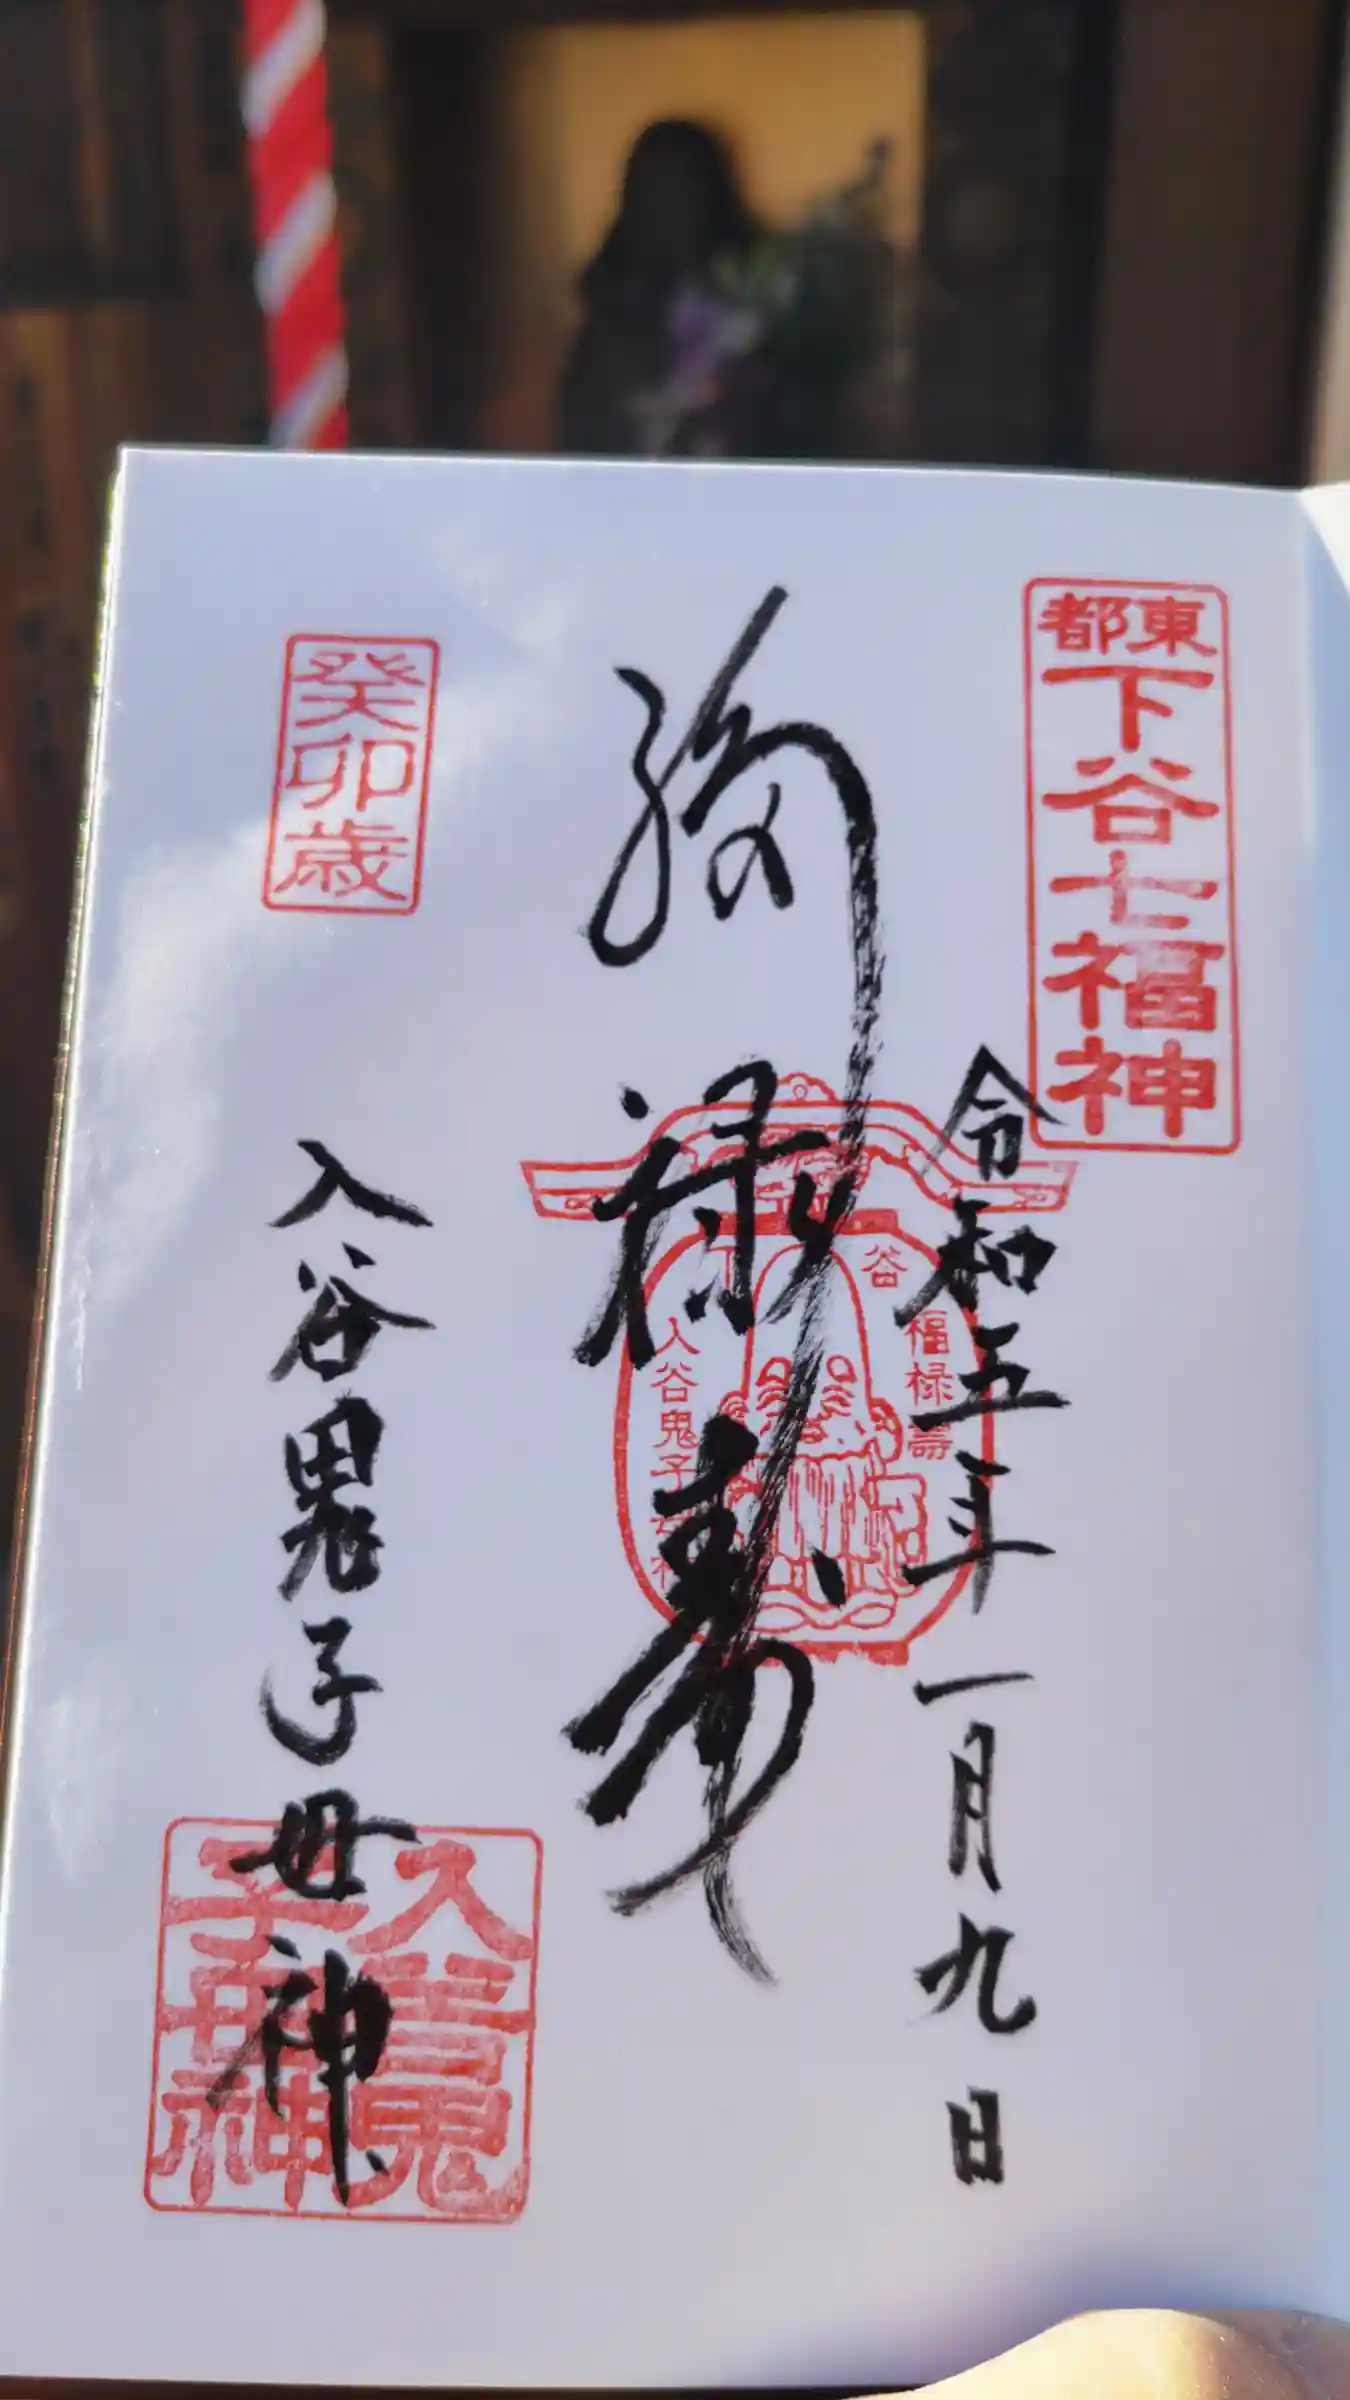 東都
下谷七福神
令和五年一月九日
福禄寿
谷
福禄壽
入谷鬼子母神
癸卯歳
入谷鬼子母神
入谷鬼子母神